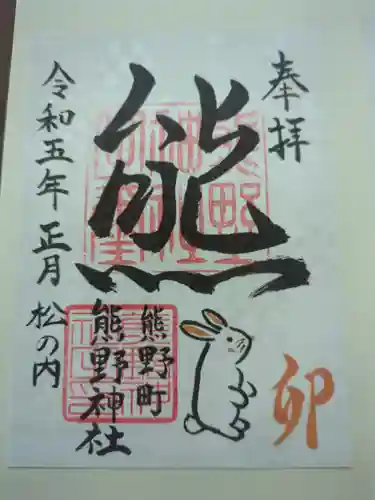 奉拝
卯
熊
熊野町
熊野神社
令和五年正月松の内